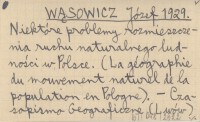 WĄSOWICZ Józef. 1929.
Niektóre problemy rozmieszcze-
nia ruchu naturalnego lud-
ności w Polsce. (La géographie
du mouvement naturel de la
population en Pologne). – Cza-
sopismo Geograficzne (Lwów)